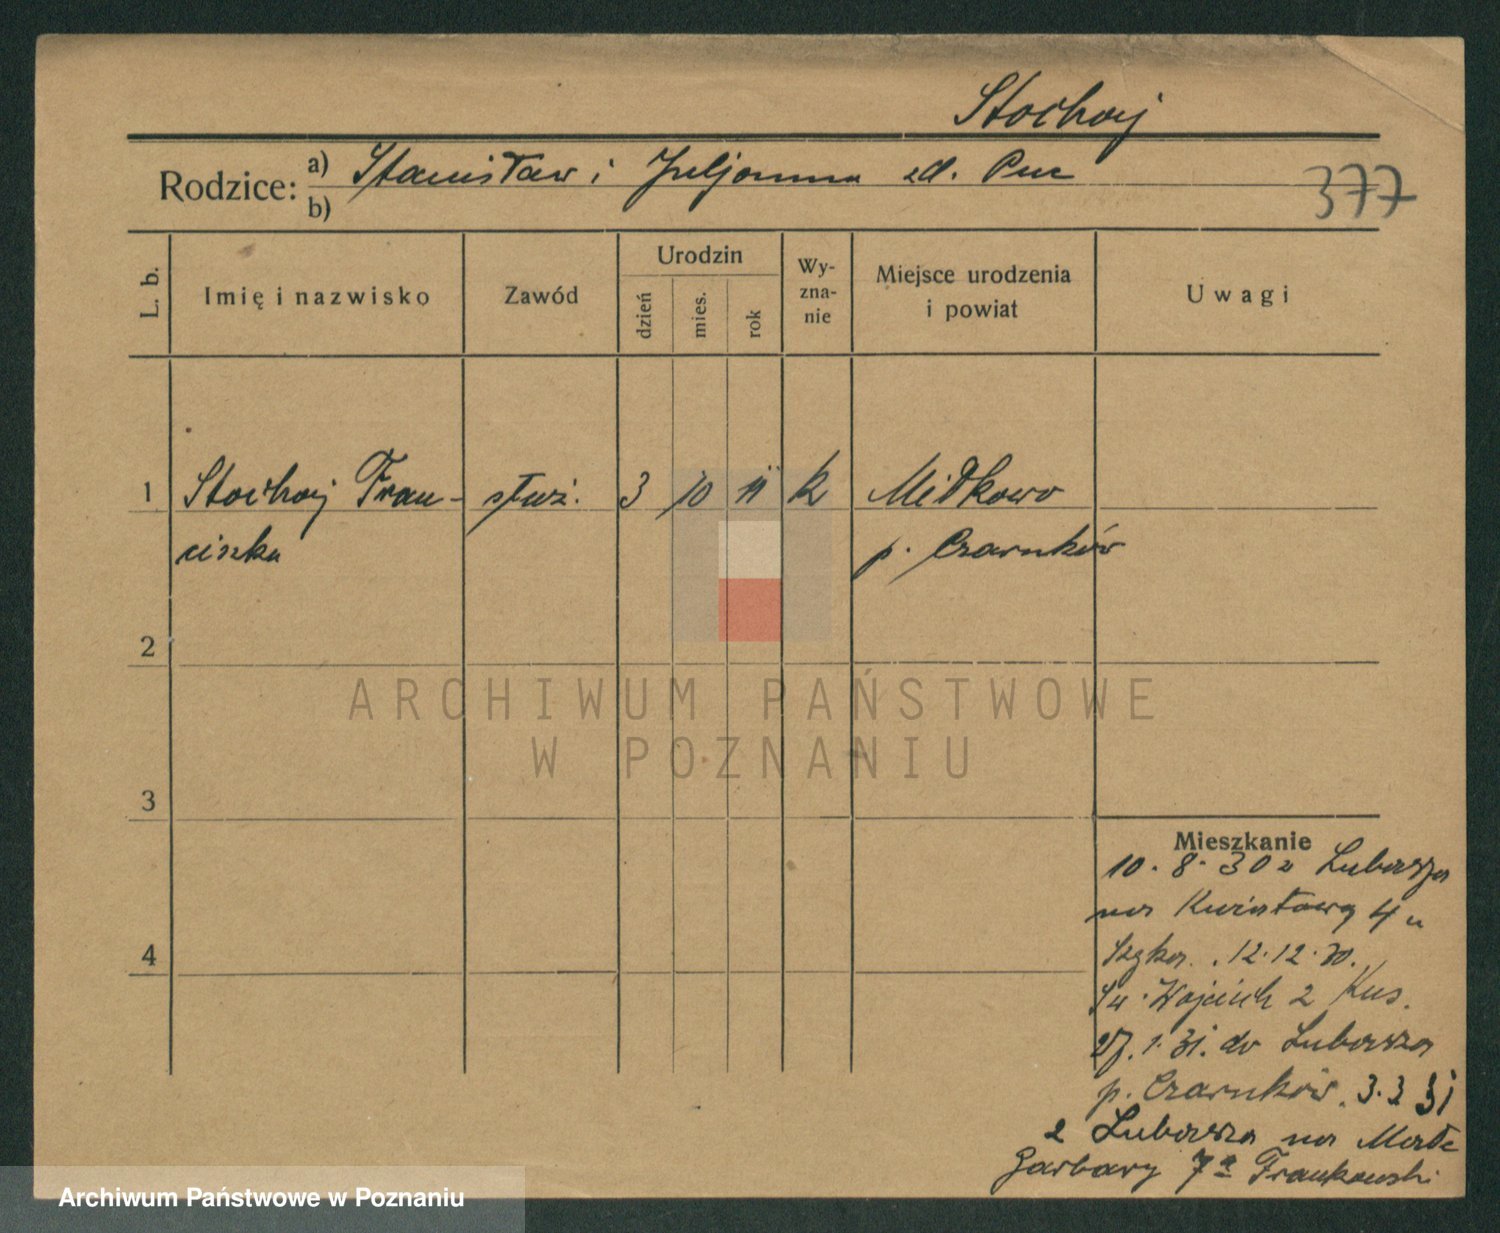 Stochaj
Rodzice: a) Stanisław i Juljanna zd. Puc
b)
377
L. b.
Imię i nazwisko
Zawód
Urodzin
dzień
mies.
rok
Wy-
zna-
nie
Miejsce urodzenia
i powiat
Uwagi
1 Stochaj Fran- służ. 3 10 11 k Miłkowo
ciszka p. Czarnków
2
ARCHIWUM PAŃSTWOWE
W POZNANIU
3
Mieszkanie
10.8.30 z Lubasza
na Kwiatową 4 u
. 12.12.30.
Św. Wojciech 2 Kus.
27.1.31. do Lubasza
4
p. Czarnków. 3.3 31
z Lubasza na Małe
Garbary 7a Frankowski
Archiwum Państwowe w Poznaniu